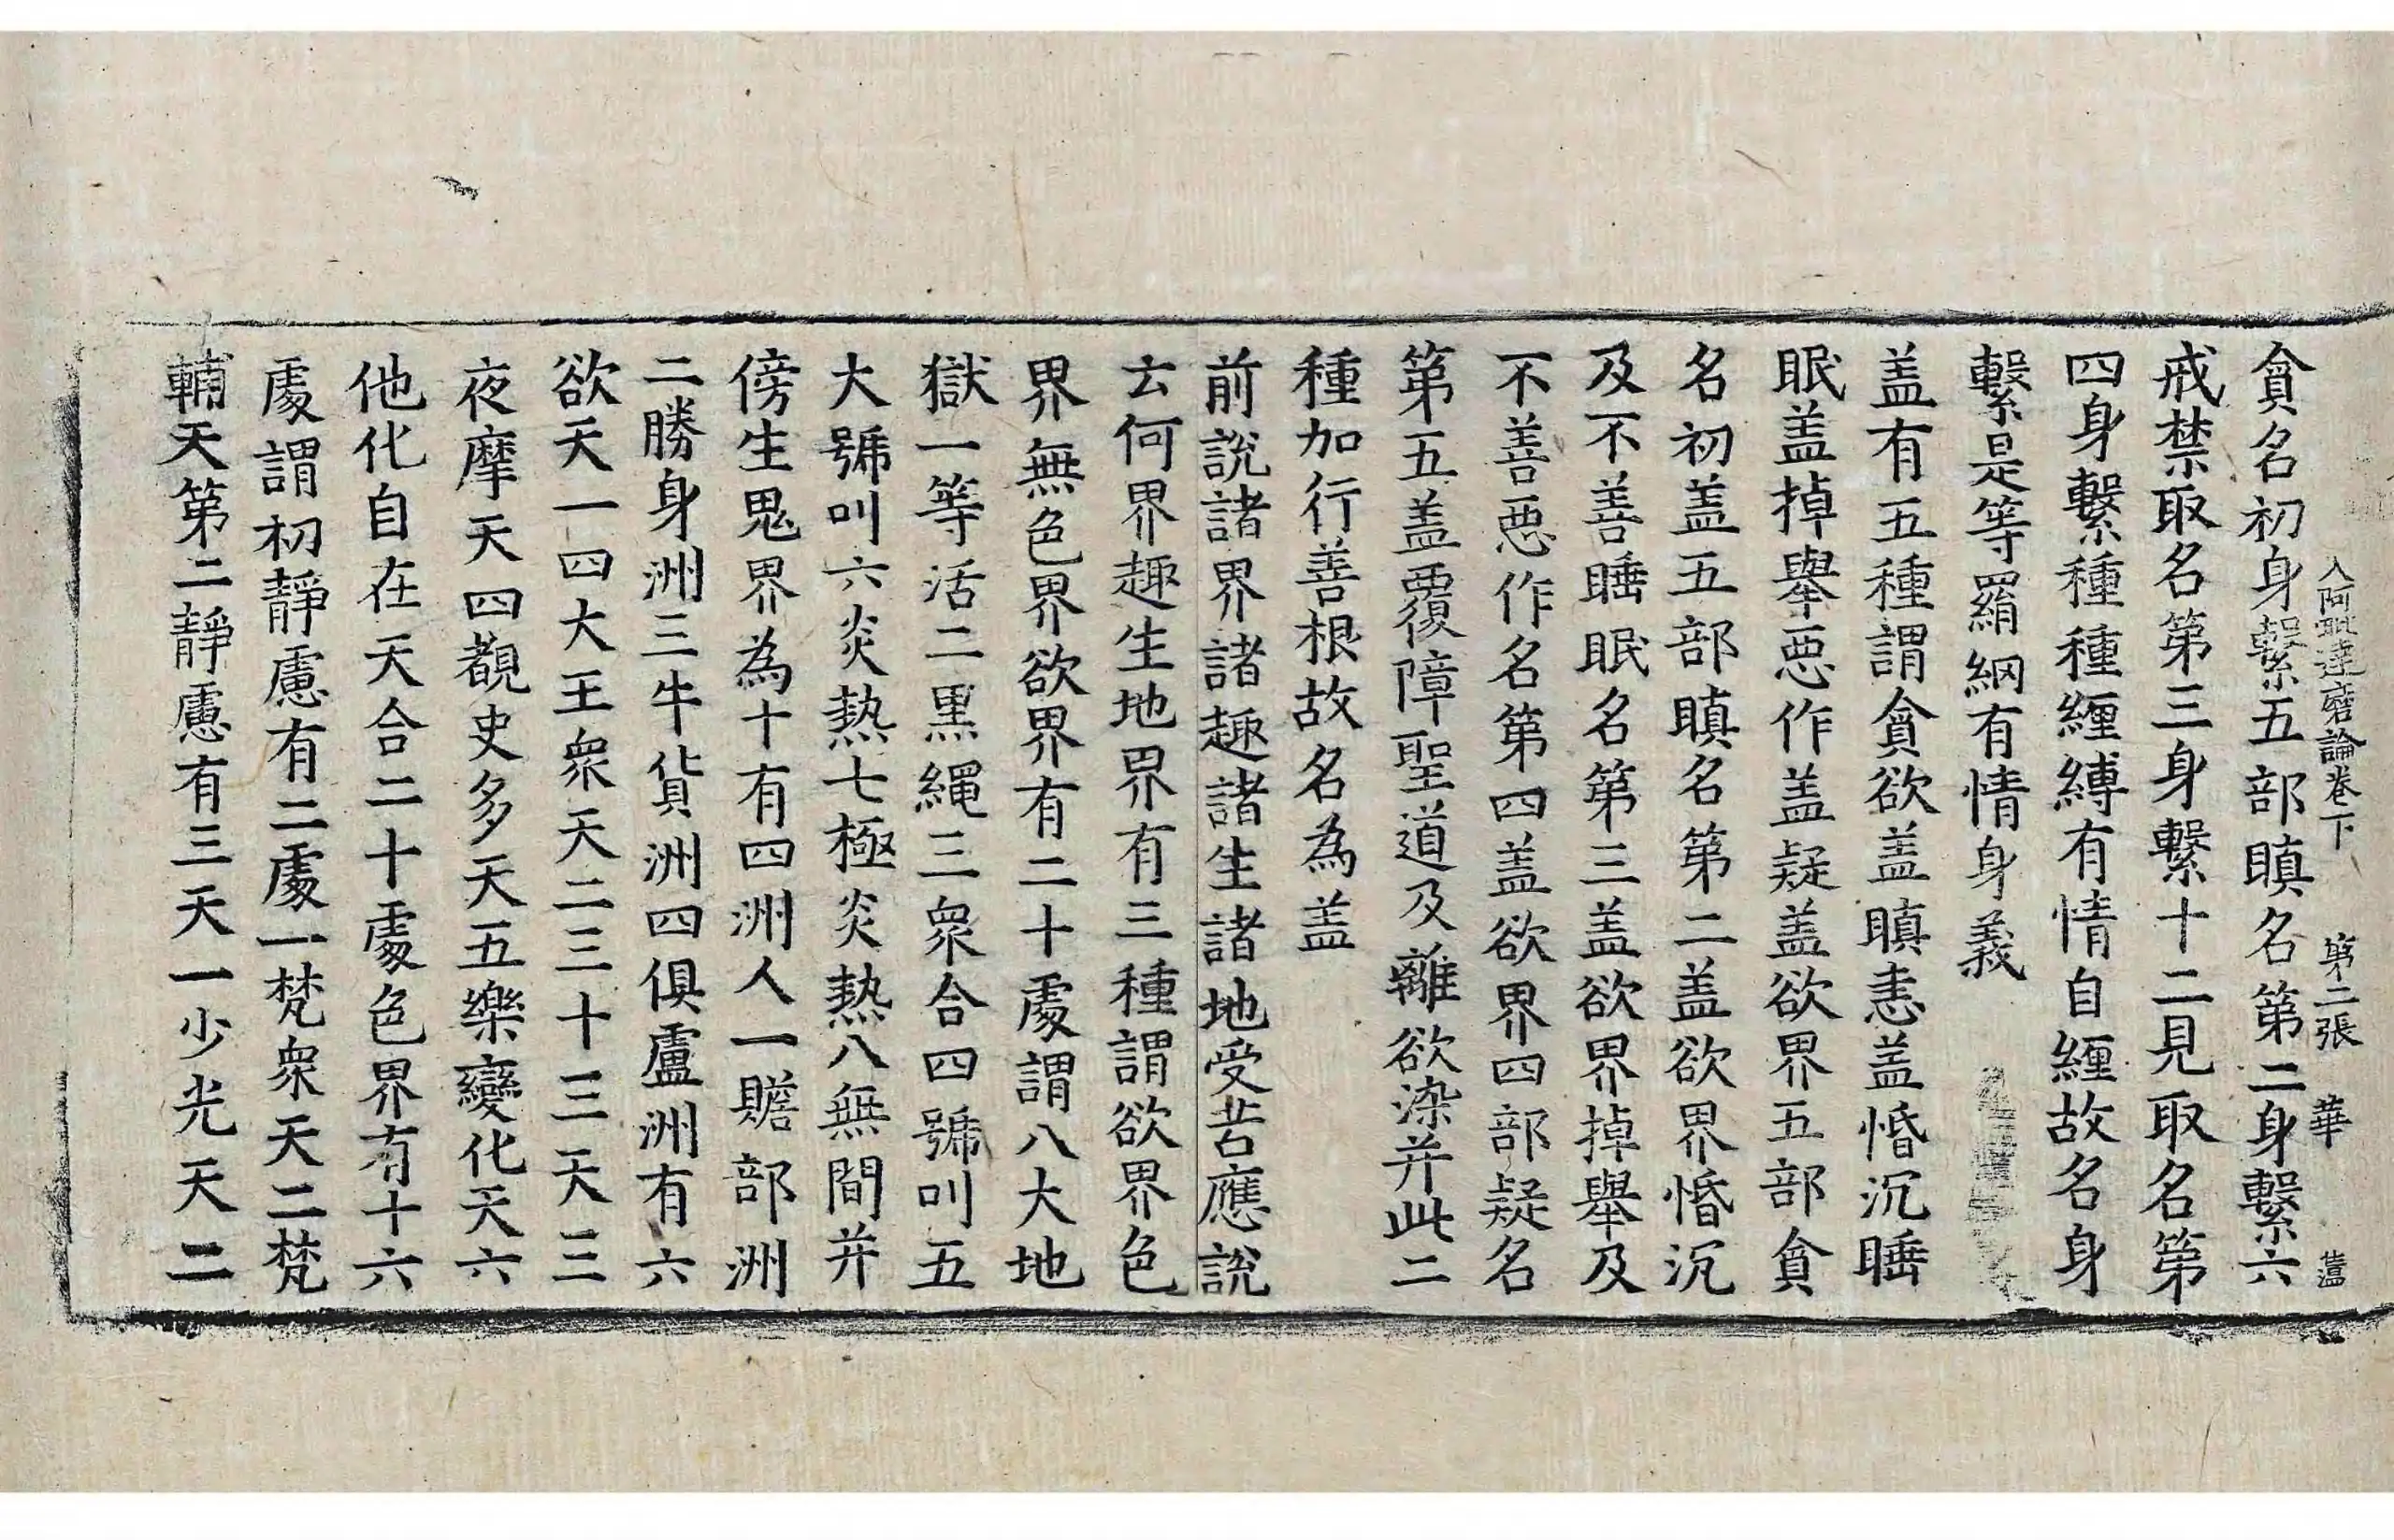 入阿毗達磨論卷下 第二張 華
貪名初身繫五部瞋名第二身繫六
戒禁取名第三身繫十二見取名第
四身繫種種纏縛有情自纏故名身
繫是等羂網有情身義
盖有五種謂貪欲盖瞋恚盖惛沉睡
眠盖掉舉惡作盖疑盖欲界五部貪
名初盖五部瞋名第二盖欲界惛沉
及不善睡眠名第三盖欲界掉舉及
不善惡作名第四盖欲界四部疑名
第五盖覆障聖道及離欲染并此二
種加行善根故名為盖
前說諸界諸趣諸生諸地受苦應說
云何界趣生地界有三種謂欲界色
界無色界欲界有二十處謂八大地
獄一等活二黑繩三衆合四號叫五
大號叫六炎熱七極炎熱八無間并
傍生鬼界為十有四洲人一贍部洲
二勝身洲三牛貨洲四俱盧洲有六
欲天一四大王衆天二三十三天三
夜摩天四覩史多天五樂變化天六
他化自在天合二十處色界有十六
處謂初靜慮有二處一梵衆天二梵
輔天第二靜慮有三天一少光天二